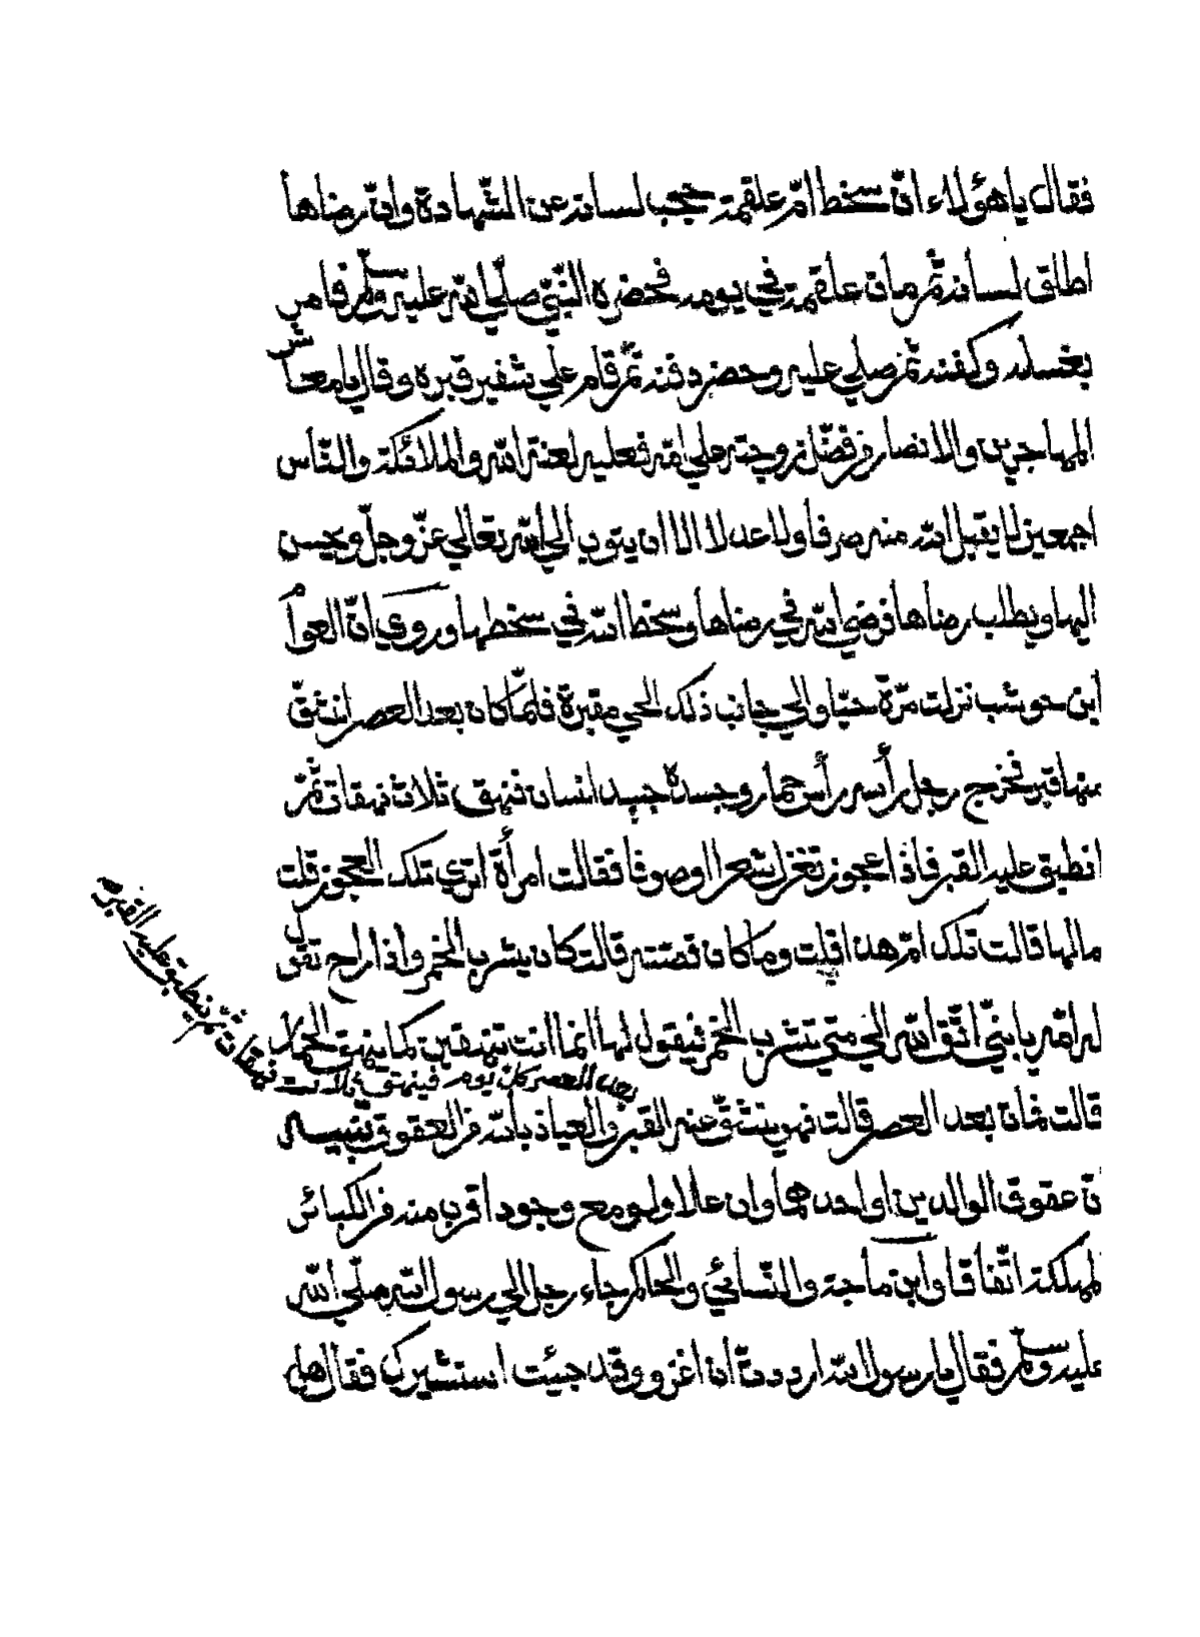 فقال يا هؤلاء انّ سخط امّ علقمة حجب لسانه عن الشّهادة وانّ رضاها
اطلق لسانه ثمّ مات علقمة في يومه فحضره النّبيّ صلّي اللّه عليه وسلّم فامر
بغسله وكفنه ثمّ صلي عليه وحضر دفنه ثمّ قام علي شفير قبره وقال يا معاشر
المهاجرين والانصار من فضّل زوجته علي امّه فعليه لعنة اللّه والملائكة والنّاس
اجمعين لا يقبل اللّه منه صرفا ولا عدلا الا ان يتوب الي اللّه تعالي عزّ وجلّ ويحسن
اليها ويطلب رضاها فرضي اللّه في رضاها وسخط اللّه في سخطها وروي انّ العوام
ابن حوشب نزلت مرّة حيّا والي جانب ذلك الحي مقبرة فلمّا كان بعد العصر انشقّ
منها قبر فخرج رجل رأسه رأس حمار وجسده جسد انسان فنهق ثلاث نهقات ثمّ
انطبق عليه القبر فاذا عجوز تغزل شعرا او صوفا فقالت امرأة اتري تلك العجوز قلت
ما لها قالت تلك امّ هذا قلت وما كان قصّته قالت كان يشرب الخمر واذا راح تقول
له امّه يا بنيّ اتّق اللّه الي متي تشرب الخمر فيقول لها انما انت تنهقين كما ينهق الحمار
قالت فمات بعد العصر قالت فهو ينشقّ عنه القبر والعياذ باللّه من العقوق تنبيه
بعد العصر كل يوم فينهق ثلاث نهقات ثمّ ينطبق عليه القبر
انّ عقوق الوالدين او احدهما وان علا ولو مع وجود اقرب منه من الكبائر
المهلكة اتّفاقا وابن ماجة والنّسائيّ والحاكم جاء رجل الي رسول اللّه صلّي اللّه
عليه وسلّم فقال يا رسول اللّه اردت أن اغزو وقد جئت استشيرك فقال هل